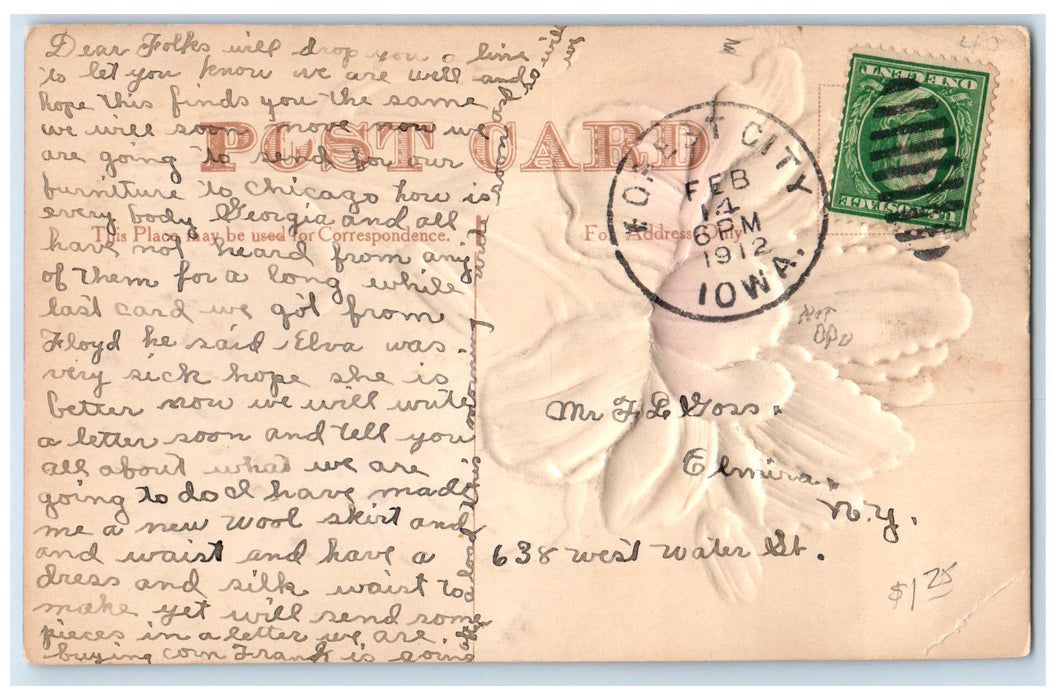 Dear Folks will drop you a line
to let you know we are well and
hope this finds you the same
we will soon move now we
are going to send for our
furniture to Chicago how is
every body Georgia and all
have not heard from any
of them for a long while
last card we got from
Floyd he said Elva was
very sick hope she is
better now we will write
a letter soon and tell you
all about what we are
going to do I have made
me a new wool skirt and
and waist and have a
dress and silk waist to
make yet will send some
pieces in a letter we are
buying corn Frank is going
after load this morning
soon
POST CARD
This Place may be used for Correspondence.
For Address Only
FOREST CITY
FEB
14
6 PM
1912
IOWA.
ONE CENT
U.S. POSTAGE
40
Mr F L Goss.
Elmira.
N.Y.
638 West Water St.
$1 25